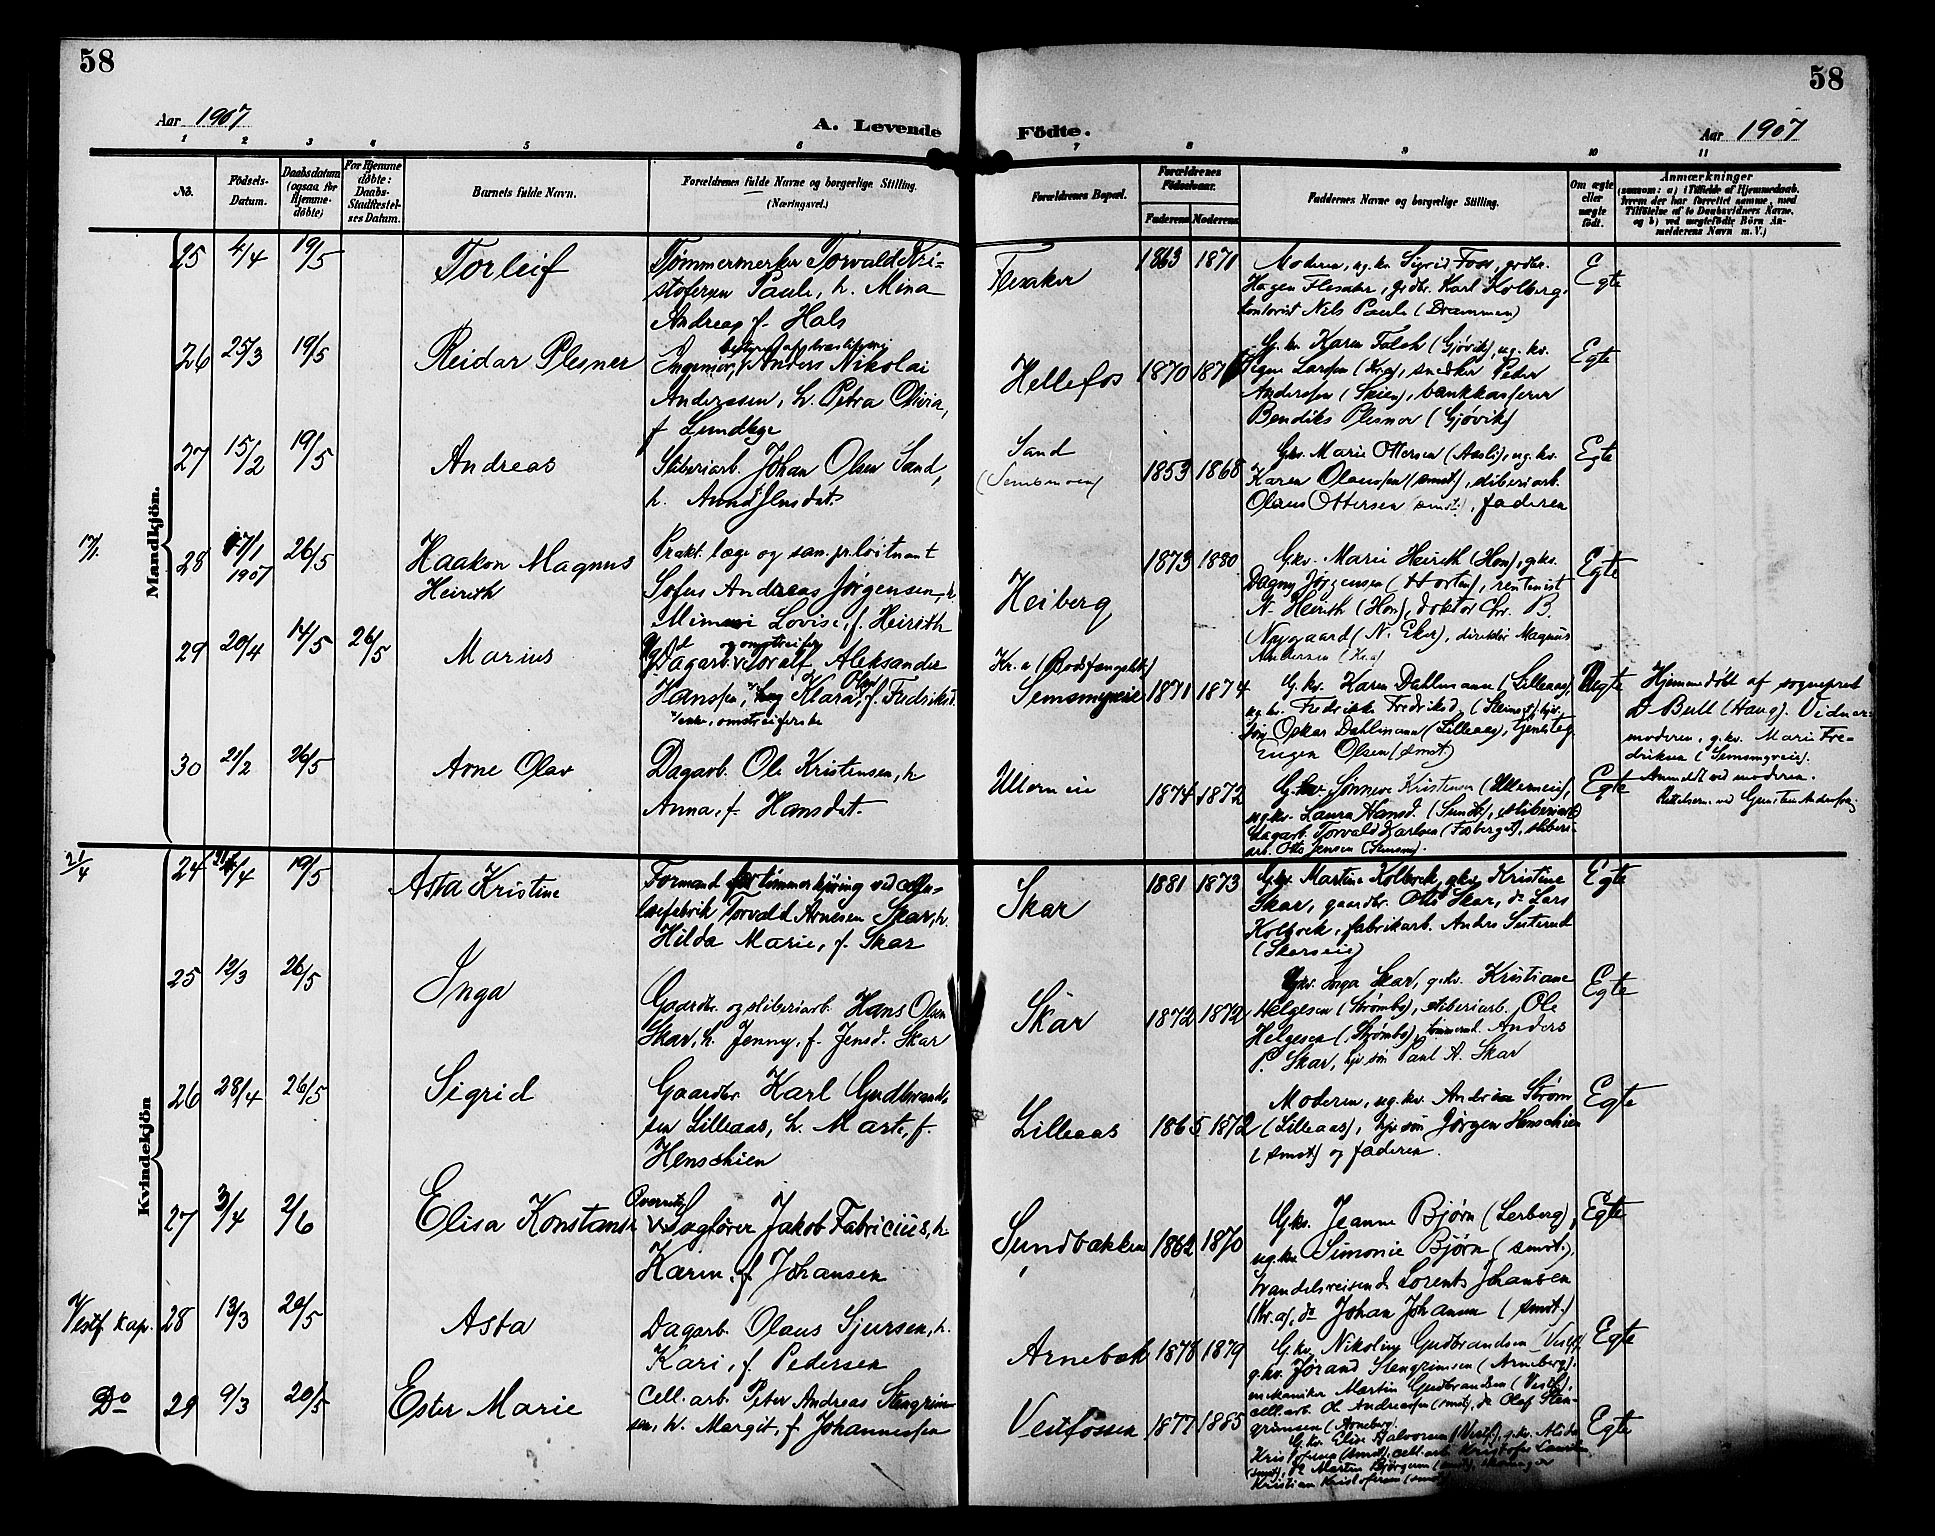 58
58
Aar 1907
A. Levende
Födte.
Aar 1907
1 2 3 4 5 6 7 8 9 10 11
No.
Födsels-Datum.
Daabsdatum (ogsaa for Hjemme-döbte)
For Hjemme döbte: Daabs-Stadfæstelses Datum.
Barnets fulde Navn.
Forældrenes fulde Navne og borgerlige Stilling.
(Næringsvei.)
Forældrenes Bopæl.
Forældrenes Födselsaar.
Faderens Moderens
Faddernes Navne og borgerlige Stilling.
Om ægte eller uægte födt.
Anmærkninger
(saasom: a) i Tilfælde af Hjemmedaab, hvem der har forrettet samme, med Tilföielse af to Daabsvidners Navne, og b) ved uægtefödte Börn Anmelderens Navn m. V.)
Mandkjön.
25 4/4 19/5 Torleif
Tømmermerker Torvald Kri-
stofersen Paule, h. Mina
Andrea f. Hals
Flesaker 1863 1871
Moderen, ug.kv. Sigrid Foss, grdbr.
Hagen Flesaker, grdbr. Karl Kolberg,
kontorist Nils Paule (Drammen)
Egte
26 25/3 19/5 Reidar Plesner
Ingeniør, Anders Nikolai
Anderssen, h. Petra Olivia,
f Lundlage
Hellefos 1870 187
G.kv. Karen Falch (Gjøvik), ug.kv.
Signe Larssen (Kra), snedker Peder
Anderssen (Skien), bankkasserer
Bendiks Plesner (Gjøvik)
Egte
27 15/2 19/5 Andreas
Sliberiarb. Johan Olsen Sand,
h. Anna Jensdat.
Sand
(Semsmoen) 1853 1868
Gkv. Marie Ottersen (Aasli), ug.kv.
Karen Olaussen (smst), sliberiarb.
Olaus Ottersen (smst.), faderen
Egte
17/1
28 17/1 1907 26/5 Haakon Magnus
Heirith
Prakt. læge og san. pr.løitnant
Sofus Andreas Jørgensen, h.
Mimmi Lovise, f. Heirith
Heiberg 1873 1880
Gkv. Marie Heirith (Hon), gkv.
Dagny Jørgensen (Horten), rentenist
N. Heirith (Hon), doktor Chr. B.
Nygaard (N. Eker), direktør Magnus
Andersen (Kra)
Egte
29 20/4 14/5 26/5 Marius
og omstreifer
Dagarb. Toralf Aleksander
Hanssen, og Klara Olga f. Fredriksd.
omstreiferske
Kr.a (Bodsfængslet)
Semsmyreie 1871 1874
G.kv. Karen Dahlmann (Lilleaas),
ug.kv. Fredrikke Fredriksd.
Oskar Dahlmann (Lilleaas),
Eugen Olsen (smst.)
Uegte
Hjemmedøbt af sogneprest
D. Bull (Haug). Vidner:
moderen, g.kv. Marie Fre-
driksen (Semsmyreie).
Anmeldt ved moderen.
30 21/2 26/5 Arne Olav
Dagarb. Ole Kristensen, h
Anna, f. Hansdat.
Ullerneie 1874 1872
G.kv. Sønneve Kristensen (Ullerneie),
ug.kv. Laura Hansd. (Sundt), sliberiarb.
dagarb. Torvald Karlsen (Fosberget), sliberi-
arb. Otto Jensen (Semsm).
Egte
Kvindekjön
21/4
24 /4 19/5 Asta Kristine
Formand for tømmerkjøring ved cellu-
losefabrik Torvald Arnesen Skar, h.
Hilda Marie, f. Skar
Skar 1881 1873
G.kv. Martine Kolbrek, g.kv. Kristine
Skar, gaardbr. Otto Skar, do Lars
Kolbrek, fabrikarb. Anders Seterud
(Skarseie)
Egte
25 12/3 26/5 Inga
Gaardbr. og sliberiarb. Hans Olsen
Skar, h. Jenny, f. Jensd. Skar
Skar 1872 1872
Gkv. Inga Skar, g.kv. Kristiane
Helgesen (Strømbo), sliberiarb. Ole
Helgesen (Strømbo), tømmermd. Anders
P. Skar, hjv. søn Paul A. Skar
Egte
26 28/4 26/5 Sigrid
Gaardbr. Karl Gudbrand-
sen Lilleaas, h. Marte, f.
Henschien
Lilleaas 1865 1872
Moderen, ug.kv. Andrine Strøm
(Lilleaas), hjv. søn Jørgen Henschien
(smst) og faderen.
Egte
27 3/4 2/6 Elisa Konstanse
Overrets
sagfører Jakob Fabricius, h.
Karen, f. Johansen
Sundbakken 1862 1870
Gkv. Jeanne Bjørn (Lerberg),
ug.kv. Simonie Bjørn (smst.),
handelsreisende Lorents Johansen
(Kr.a), do Johan Johansen (smst.)
Egte
Vestf. kap. 28 13/3 20/5 Asta
Dagarb. Olaus Sjursen, h.
Kari, f. Pedersen
Arnebæk 1878 1879
G.kv. Nikoline Gudbrandsen (Vestf),
g.kv. Jørand Stengrimsen (Arneberg).
mekaniker Martin Gudbrandsen (Vestf),
cell.arb. Ole Andreassen (smst), do Olaf Sten-
grimsen (Arneberg).
Egte
Do 29 9/3 20/5 Ester Marie
Cell. arb. Peter Andreas Stengrim-
sen, h. Margit, f. Johannessen
Vestfossen 1877 1885
G.kv. Elise Halvorsen (Vestf), g.kv. Alida
Kristofersen (smst), cell.arb. Kristofer Laurits
(smst), do Martin Bjørgum (smst),
Kristian Kristofersen (smst)
Egte